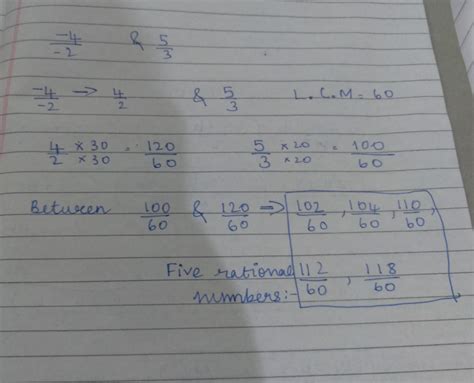 -4/-2 & 5/3
-4/-2 → 4/2 & 5/3 L.C.M = 60
4/2 × 30/× 30 = 120/60 5/3 × 20/× 20 = 100/60
Between 100/60 & 120/60 ⇒ 102/60, 104/60, 110/60,
Five rational numbers:- 112/60, 118/60